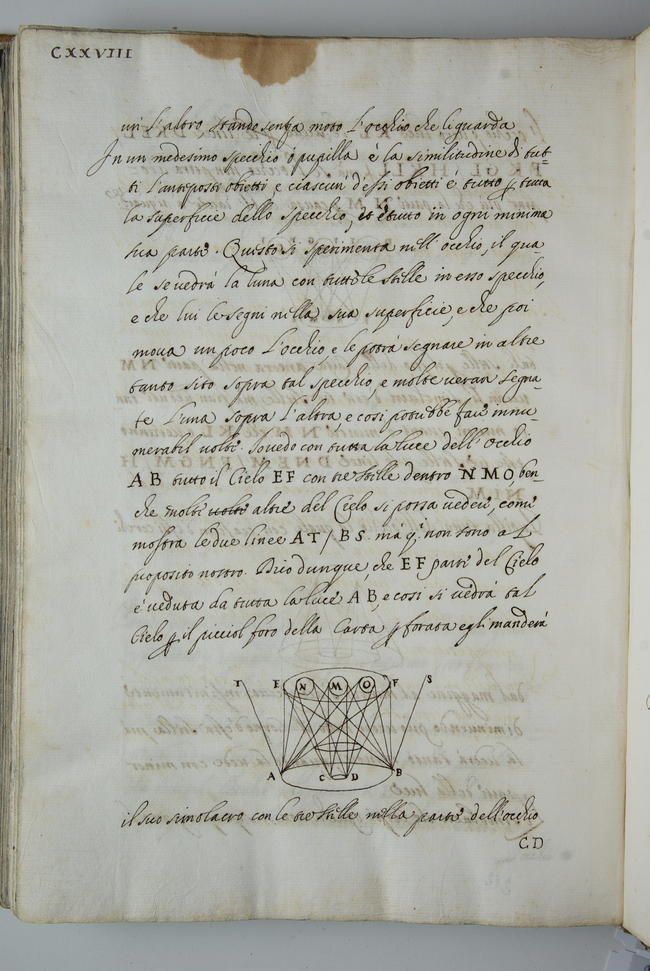 CXXVIII
un' l'altro, stando senza moto l'occhio che li guarda
In un medesimo specchio ò pupilla è la similitudine di tut=
ti l'anteposti obietti e ciascun' d'essi obietti è tutto p tutta
la superficie dello specchio, et è tutto in ogni minima
sua parte. Questo si sperimenta nell' occhio, il qua
le se vedrà la luna con tutte le stelle in esso specchio,
e che lui le segni nella sua superficie, e che poi
mova un poco l'occhio e le potrà segnare in altre
tanto sito sopra tal specchio, e molte veran' segna=
te l'una sopra l'altra, e così potrebbe fare innu=
merabil volte. Io vedo con tutta la luce dell' occhio
AB tutto il Cielo EF con tre stelle dentro NMO, ben=
che molte volte altre del Cielo si possa vedere, come
mostra le due linee AT / BS. mà q. non sono al
proposito nostro. Dico dunque, che EF parte del Cielo
è veduta da tutta la luce AB, e così si vedrà tal
Cielo p il picciol foro della Carta p forata egli manderà
T E N M O F S
A C D B
il suo simolacro con le tre stelle nella parte dell'occhio
CD